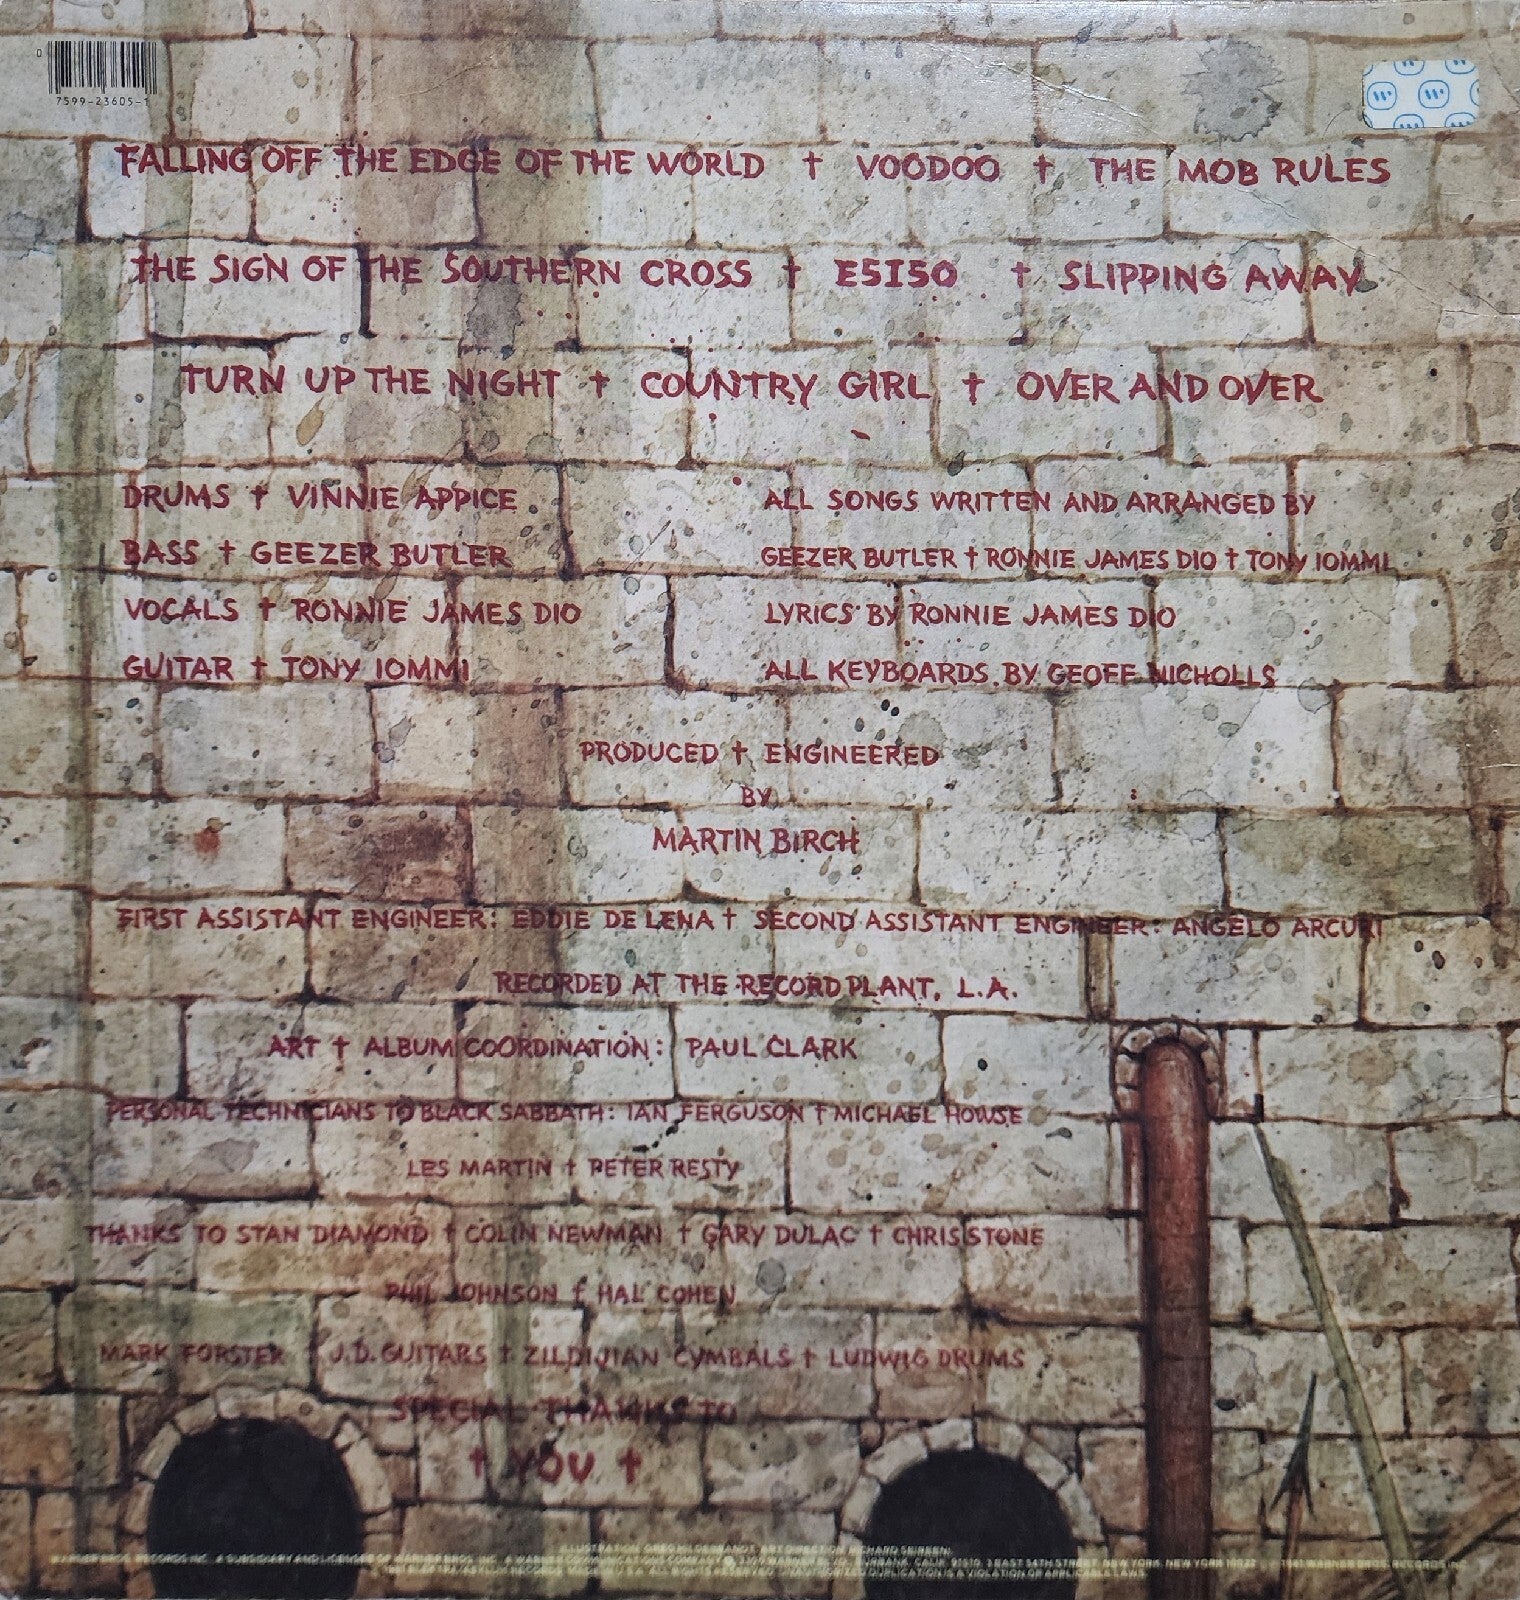 0
7599-23605-1
FALLING OFF THE EDGE OF THE WORLD † VOODOO † THE MOB RULES
THE SIGN OF THE SOUTHERN CROSS † E5150 † SLIPPING AWAY
TURN UP THE NIGHT † COUNTRY GIRL † OVER AND OVER
DRUMS † VINNIE APPICE
BASS † GEEZER BUTLER
VOCALS † RONNIE JAMES DIO
GUITAR † TONY IOMMI
ALL SONGS WRITTEN AND ARRANGED BY
GEEZER BUTLER † RONNIE JAMES DIO † TONY IOMMI
LYRICS BY RONNIE JAMES DIO
ALL KEYBOARDS BY GEOFF NICHOLLS
PRODUCED † ENGINEERED
BY
MARTIN BIRCH
FIRST ASSISTANT ENGINEER: EDDIE DE LENA † SECOND ASSISTANT ENGINEER: ANGELO ARCURI
RECORDED AT THE RECORD PLANT, L.A.
ART † ALBUM COORDINATION: PAUL CLARK
PERSONAL TECHNICIANS TO BLACK SABBATH: IAN FERGUSON † MICHAEL HOWSE
LES MARTIN † PETER RESTY
THANKS TO STAN DIAMOND † COLIN NEWMAN † GARY DULAC † CHRIS STONE
PHIL JOHNSON † HAL COHEN
MARK FORSTER † J.D. GUITARS † ZILDJIAN CYMBALS † LUDWIG DRUMS
SPECIAL THANKS TO
† YOU †
ILLUSTRATION: GREG HILDEBRANDT. ART DIRECTION: RICHARD SEIREENI.
WARNER BROS. RECORDS INC., A SUBSIDIARY AND LICENSEE OF WARNER BROS. INC., A WARNER COMMUNICATIONS COMPANY 3300 WARNER BLVD., BURBANK, CALIF. 91510. 3 EAST 54TH STREET, NEW YORK, NEW YORK 10022 1981 WARNER BROS. RECORDS INC.
ALL RIGHTS RESERVED. UNAUTHORIZED DUPLICATION IS A VIOLATION OF APPLICABLE LAWS.